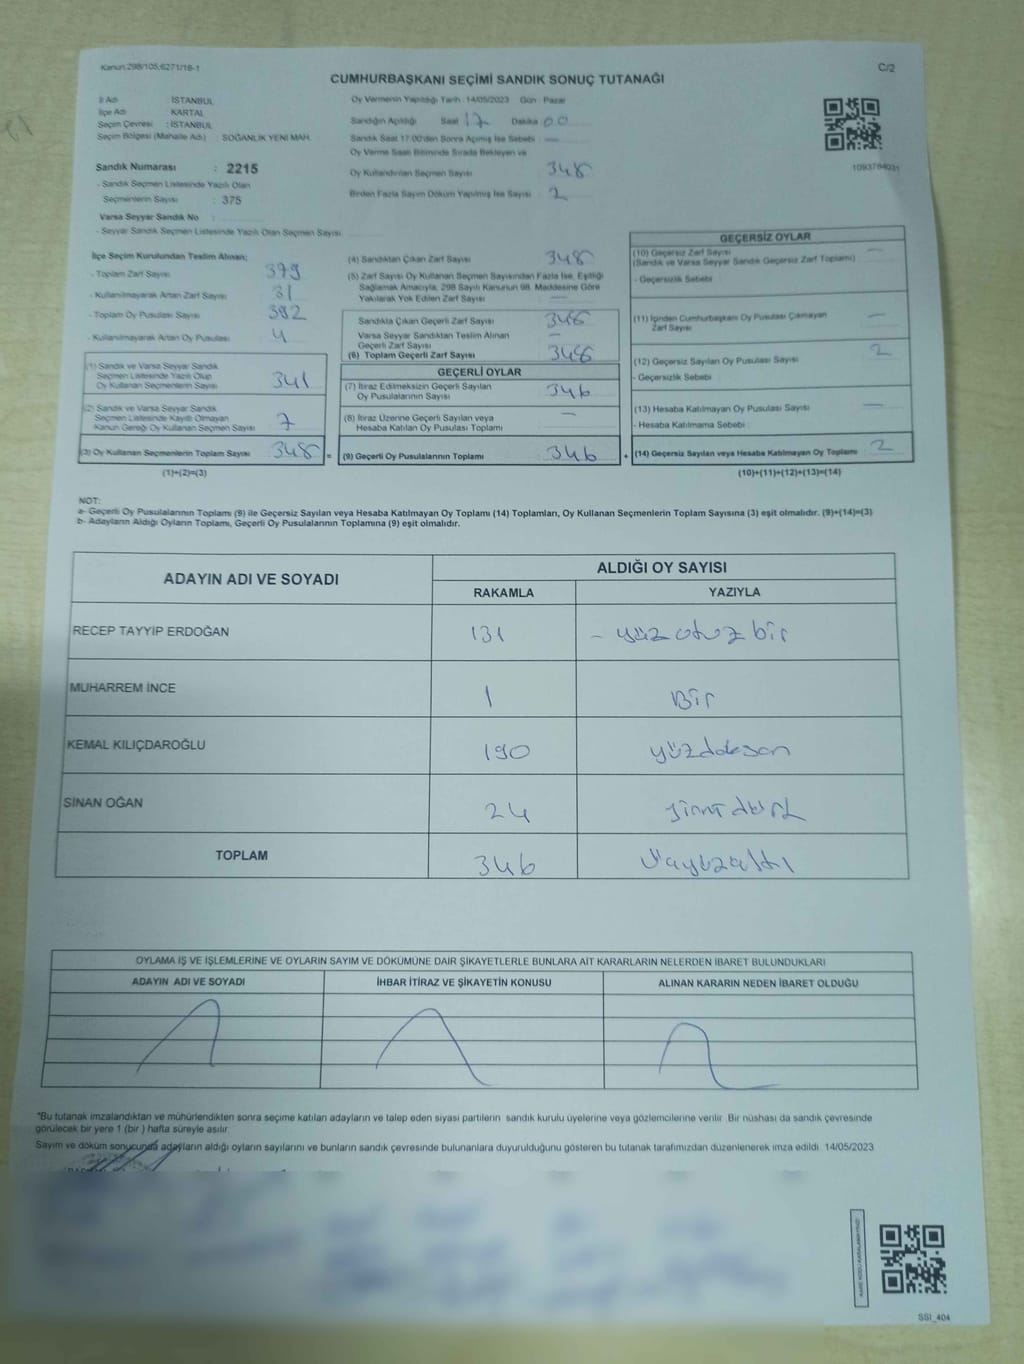 Kanun:298/105,6271/16-1
C/2
CUMHURBAŞKANI SEÇİMİ SANDIK SONUÇ TUTANAĞI
İl Adı : İSTANBUL
İlçe Adı : KARTAL
Seçim Çevresi : İSTANBUL
Seçim Bölgesi (Mahalle Adı) : SOĞANLIK YENİ MAH.
Sandık Numarası : 2215
- Sandık Seçmen Listesinde Yazılı Olan
Seçmenlerin Sayısı : 375
Varsa Seyyar Sandık No :
- Seyyar Sandık Seçmen Listesinde Yazılı Olan Seçmen Sayısı :
Oy Vermenin Yapıldığı Tarih :14/05/2023 Gün : Pazar
Sandığın Açıldığı Saat 17 Dakika 00
Sandık Saat 17:00'den Sonra Açılmış İse Sebebi : —
Oy Verme Saati Bitiminde Sırada Bekleyen ve
Oy Kullandırılan Seçmen Sayısı 348
Birden Fazla Sayım Döküm Yapılmış İse Sayısı : 2
1093784031
İlçe Seçim Kurulundan Teslim Alınan;
- Toplam Zarf Sayısı 379
- Kullanılmayarak Artan Zarf Sayısı 31
- Toplam Oy Pusulası Sayısı 392
- Kullanılmayarak Artan Oy Pusulası 4
(1) Sandık ve Varsa Seyyar Sandık
Seçmen Listesinde Yazılı Olup
Oy Kullanan Seçmenlerin Sayısı 341
(2) Sandık ve Varsa Seyyar Sandık
Seçmen Listesinde Kayıtlı Olmayan
Kanun Gereği Oy Kullanan Seçmen Sayısı 7
(3) Oy Kullanan Seçmenlerin Toplam Sayısı 348 =
(1)+(2)=(3)
(4) Sandıktan Çıkan Zarf Sayısı 348
(5) Zarf Sayısı Oy Kullanan Seçmen Sayısından Fazla İse, Eşitliği
Sağlamak Amacıyla, 298 Sayılı Kanunun 98. Maddesine Göre
Yakılarak Yok Edilen Zarf Sayısı —
Sandıkta Çıkan Geçerli Zarf Sayısı 348
Varsa Seyyar Sandıktan Teslim Alınan
Geçerli Zarf Sayısı —
(6) Toplam Geçerli Zarf Sayısı 348
GEÇERLİ OYLAR
(7) İtiraz Edilmeksizin Geçerli Sayılan
Oy Pusulalarının Sayısı 346
(8) İtiraz Üzerine Geçerli Sayılan veya
Hesaba Katılan Oy Pusulası Toplamı —
(9) Geçerli Oy Pusulalarının Toplamı 346 +
GEÇERSİZ OYLAR
(10) Geçersiz Zarf Sayısı —
(Sandık ve Varsa Seyyar Sandık Geçersiz Zarf Toplamı)
- Geçersizlik Sebebi :
(11) İçinden Cumhurbaşkanı Oy Pusulası Çıkmayan
Zarf Sayısı —
(12) Geçersiz Sayılan Oy Pusulası Sayısı 2
- Geçersizlik Sebebi :
(13) Hesaba Katılmayan Oy Pusulası Sayısı —
- Hesaba Katılmama Sebebi :
(14) Geçersiz Sayılan veya Hesaba Katılmayan Oy Toplamı 2
(10)+(11)+(12)+(13)=(14)
NOT:
a- Geçerli Oy Pusulalarının Toplamı (9) ile Geçersiz Sayılan veya Hesaba Katılmayan Oy Toplamı (14) Toplamları, Oy Kullanan Seçmenlerin Toplam Sayısına (3) eşit olmalıdır. (9)+(14)=(3)
b- Adayların Aldığı Oyların Toplamı, Geçerli Oy Pusulalarının Toplamına (9) eşit olmalıdır.
ADAYIN ADI VE SOYADI
ALDIĞI OY SAYISI
RAKAMLA YAZIYLA
RECEP TAYYİP ERDOĞAN 131 - yüz otuz bir
MUHARREM İNCE 1 Bir
KEMAL KILIÇDAROĞLU 190 yüzdoksan
SİNAN OĞAN 24
TOPLAM 346
OYLAMA İŞ VE İŞLEMLERİNE VE OYLARIN SAYIM VE DÖKÜMÜNE DAİR ŞİKAYETLERLE BUNLARA AİT KARARLARIN NELERDEN İBARET BULUNDUKLARI
ADAYIN ADI VE SOYADI İHBAR İTİRAZ VE ŞİKAYETİN KONUSU ALINAN KARARIN NEDEN İBARET OLDUĞU
"Bu tutanak imzalandıktan ve mühürlendikten sonra seçime katılan adayların ve talep eden siyasi partilerin sandık kurulu üyelerine veya gözlemcilerine verilir. Bir nüshası da sandık çevresinde
görülecek bir yere 1 (bir ) hafta süreyle asılır.
Sayım ve döküm sonucunda adayların aldığı oyların sayılarını ve bunların sandık çevresinde bulunanlara duyurulduğunu gösteren bu tutanak tarafımızdan düzenlenerek imza edildi. 14/05/2023
SSİ_404